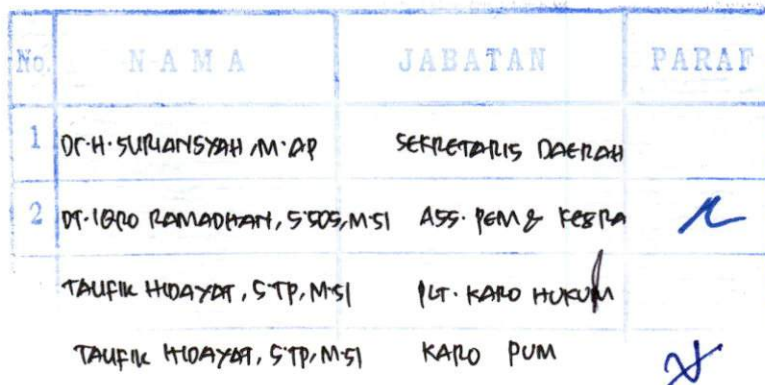 No. NAMA JABATAN PARAF
1 Dr. H. SURIANSYAH, M.AP SEKRETARIS DAERAH
2 Dr. IQRO RAMADHAN, S.SOS, M.SI ASS. PEM & KESRA
TAUFIK HIDAYAT, S.TP, M.SI PLT. KARO HUKUM
TAUFIK HIDAYAT, S.TP, M.SI KARO PUM